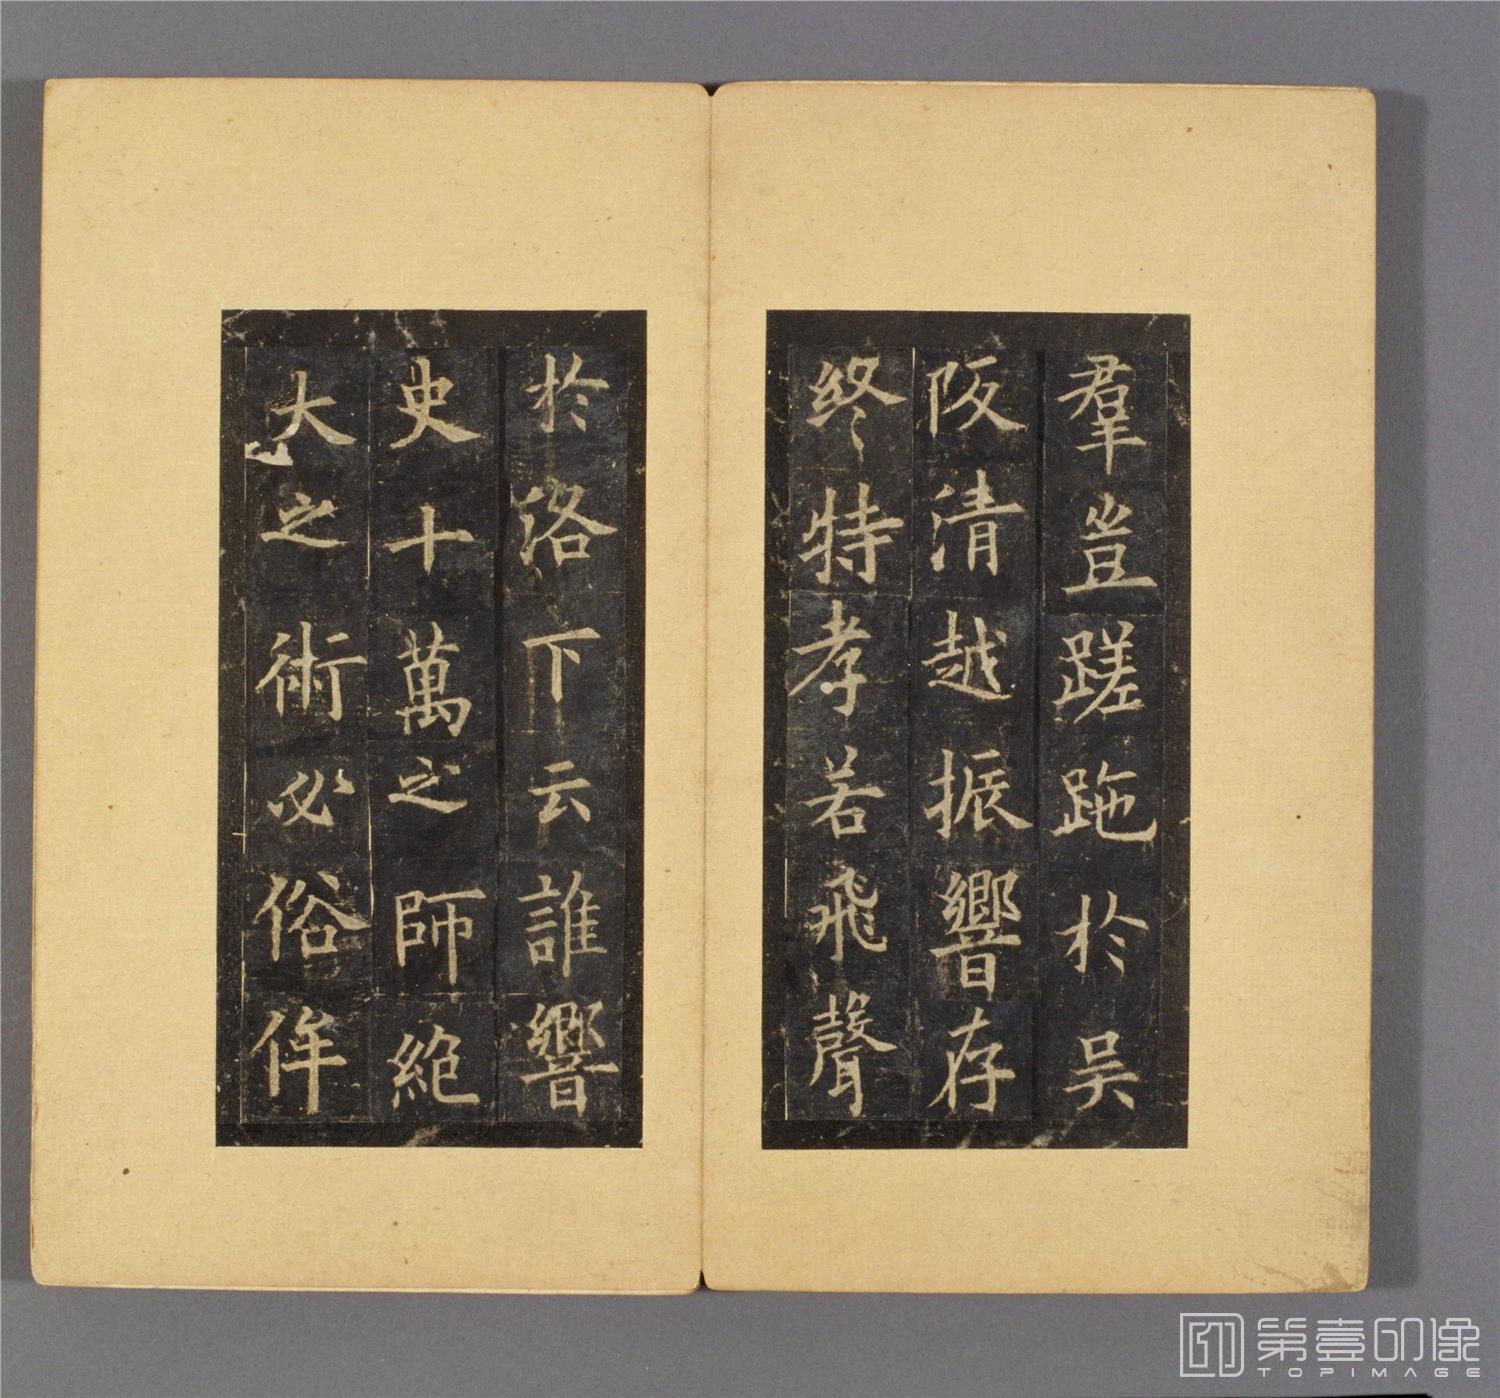 羣豈蹉跎於吴
阪清越振響存
終特孝若飛聲
於洛下云誰響
史十萬之師絶
大之術必俗侔
第壹印像
TOPIMAGE